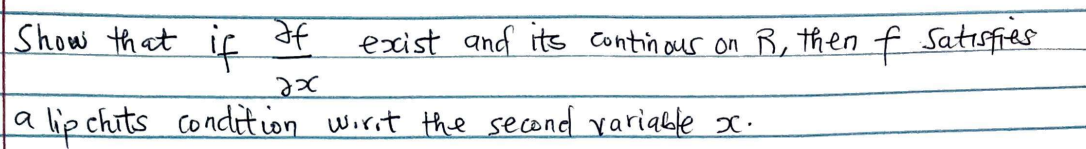 Show that if ∂f/∂x exist and its continous on R, then f satisfies
a lipchits condition w.r.t the second variable x.